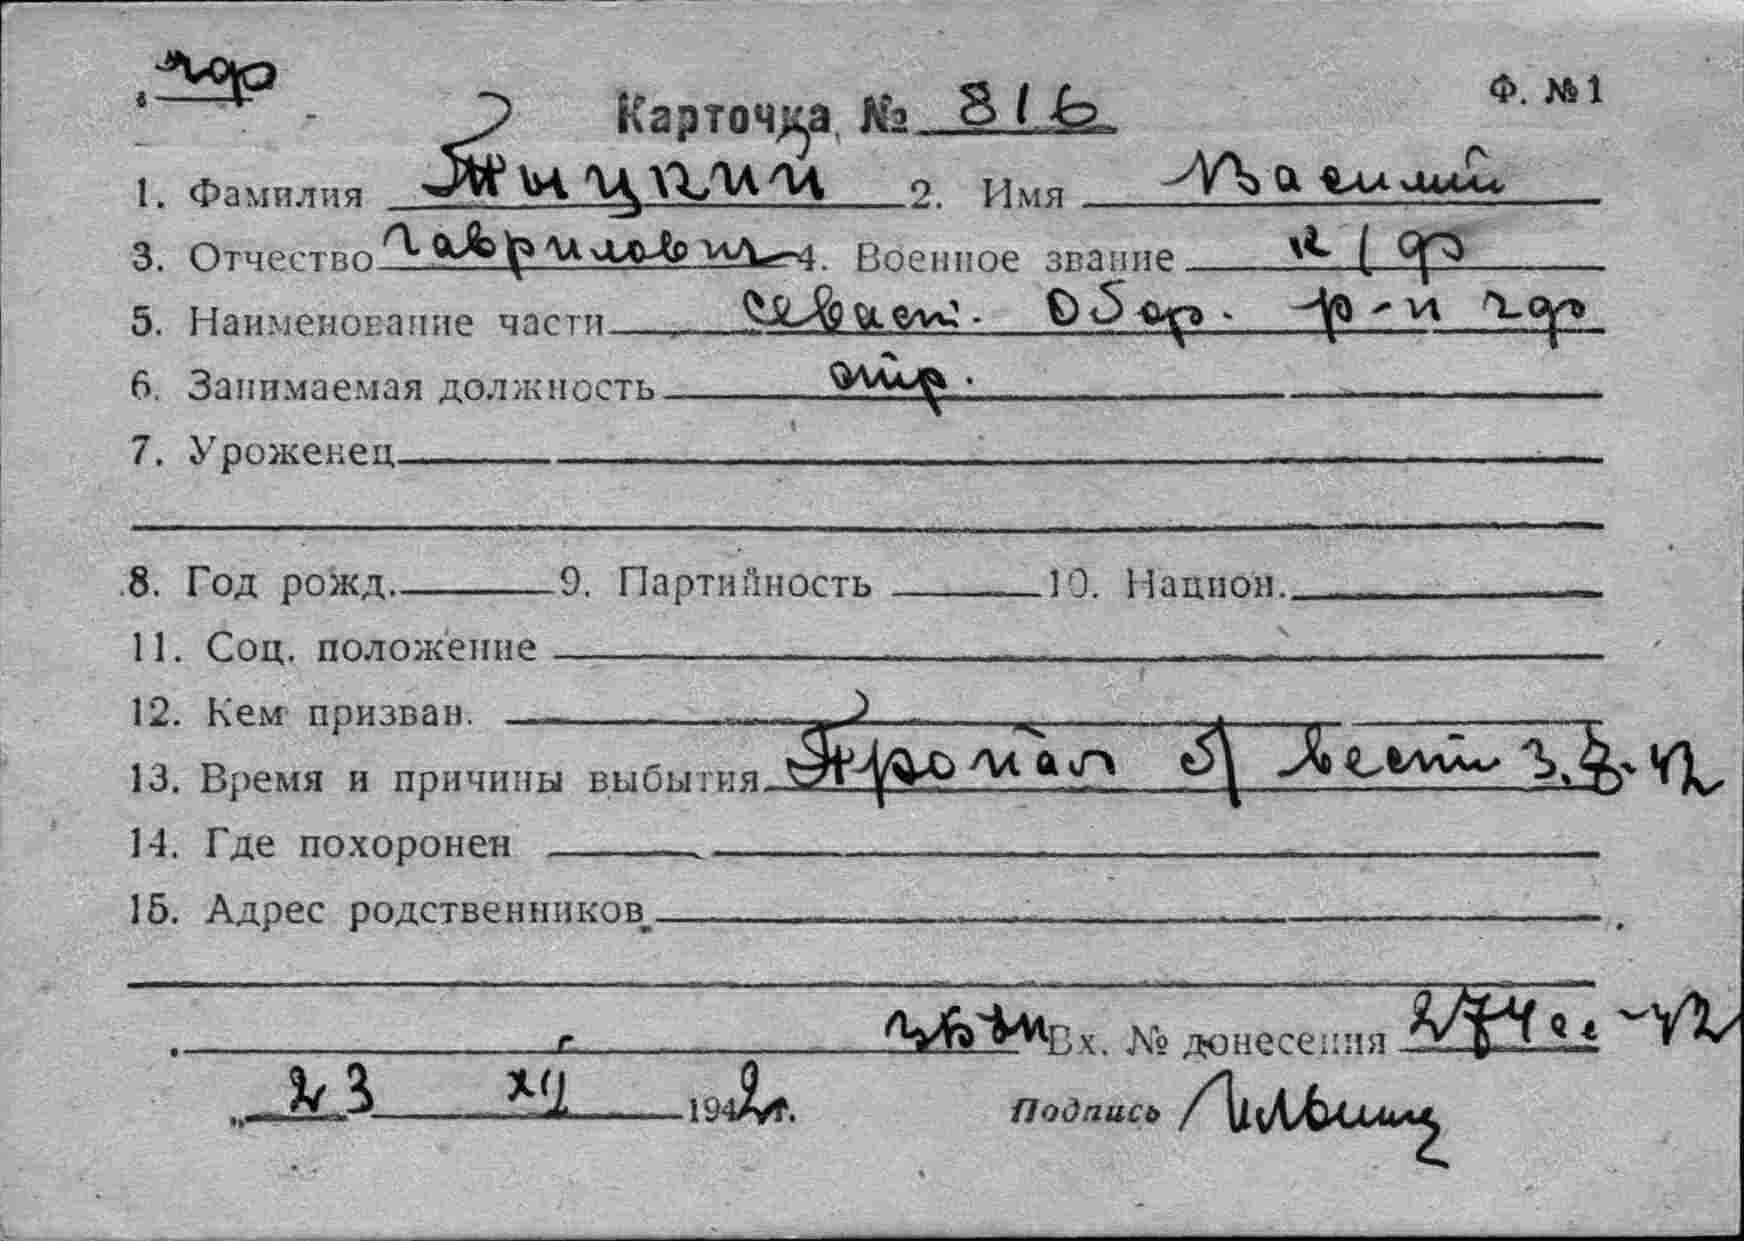 чф
Карточка № 816 Ф. №1
1. Фамилия Тыцкий 2. Имя Василий
3. Отчество Гаврилович 4. Военное звание к/ф
5. Наименование части Севаст. Обор. р-н чф
6. Занимаемая должность стр.
7. Уроженец
8. Год рожд. 9. Партийность 10. Национ.
11. Соц. положение
12. Кем призван.
13. Время и причины выбытия Пропал б/вести 3.7.42
14. Где похоронен
15. Адрес родственников
Вх. № донесения 274сс-42
„ 23 XII 1942г. Подпись